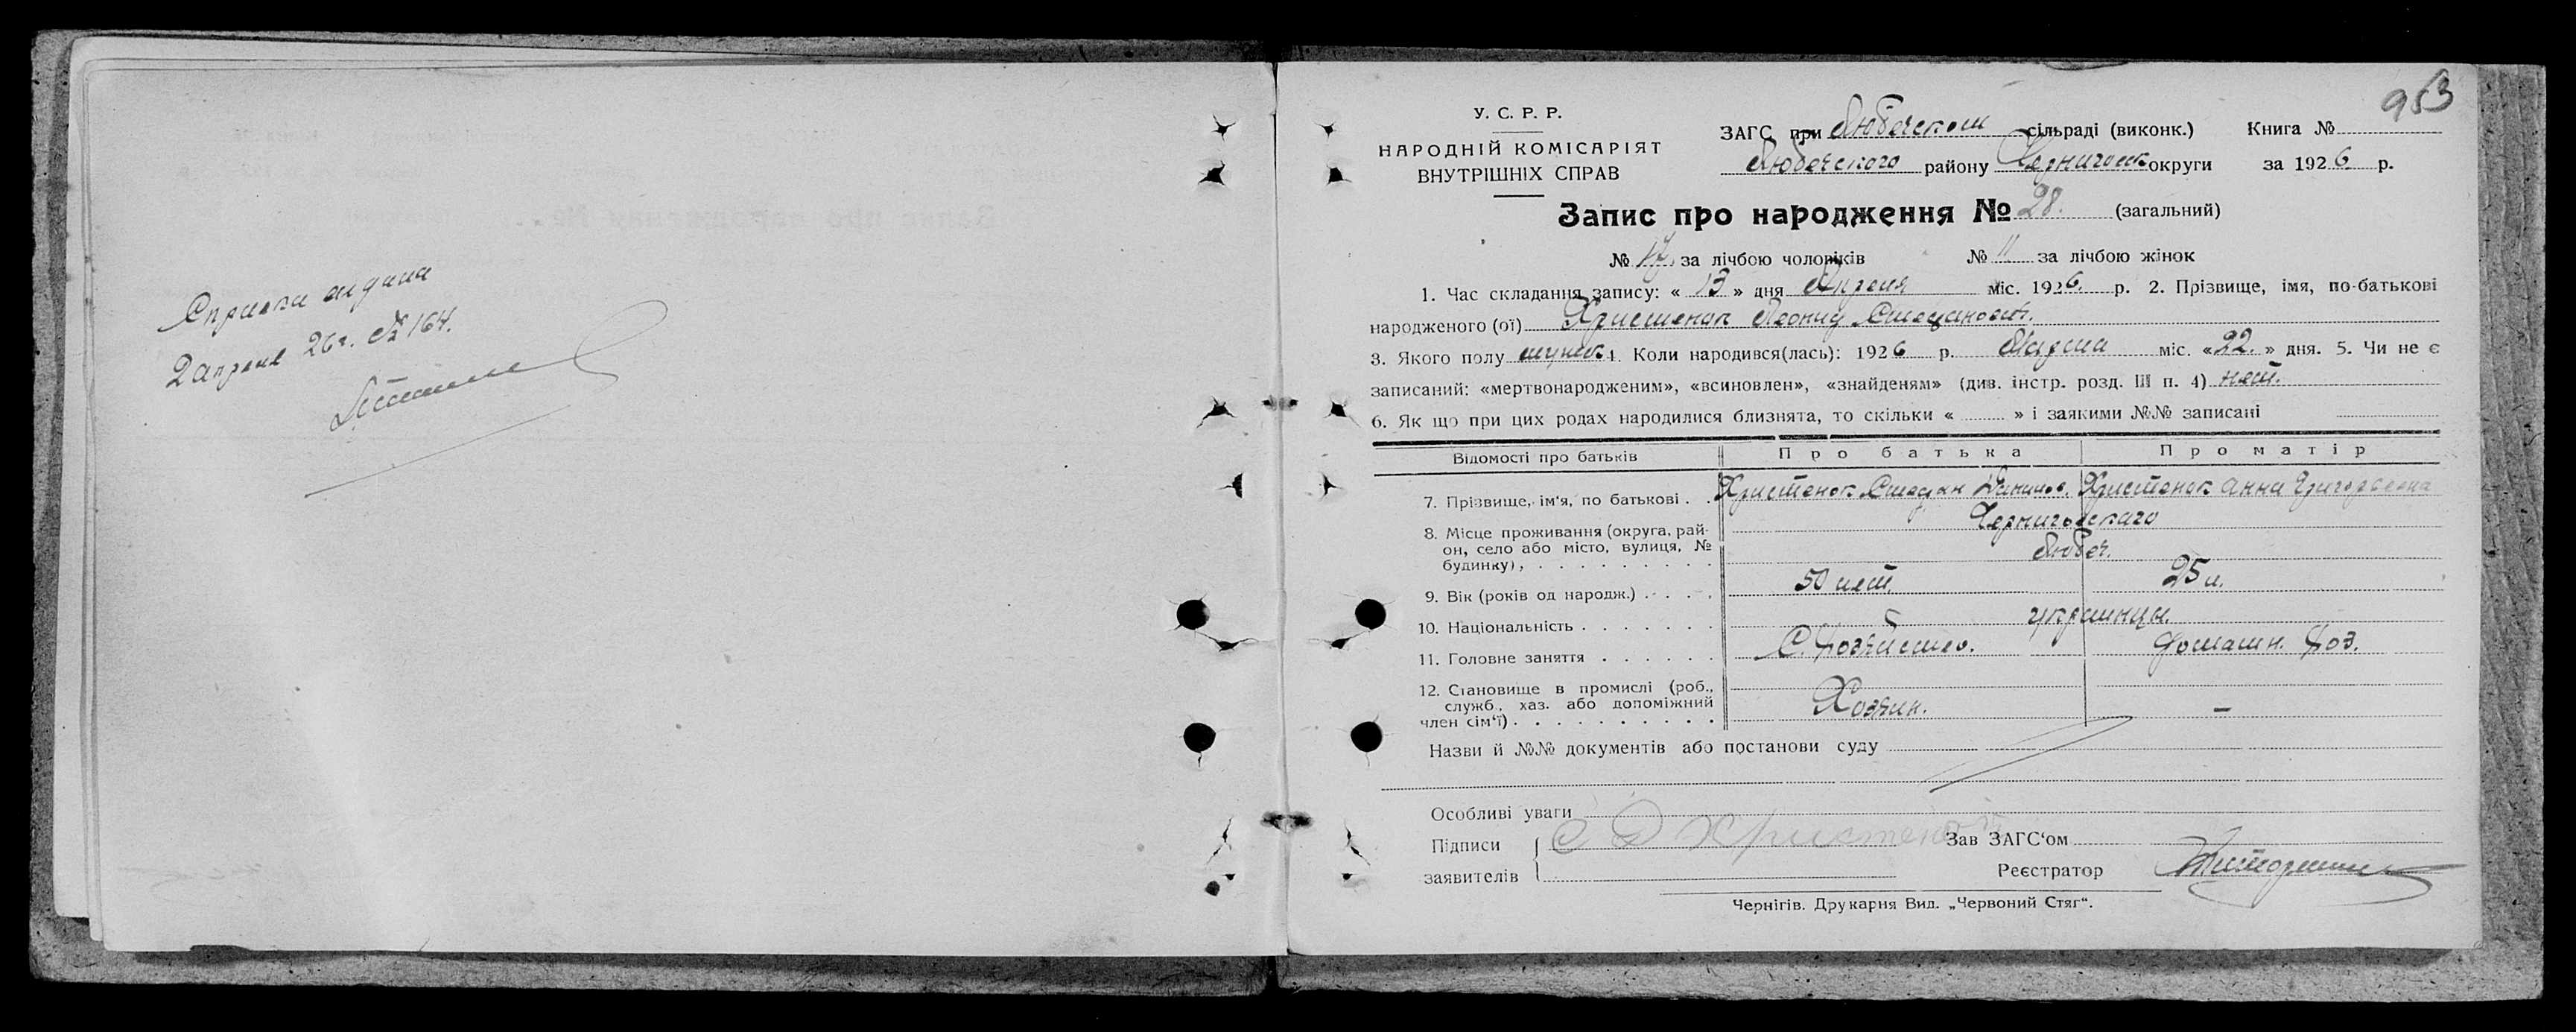 Справка выдана
2 апреля 26 г. № 164.
953
У. С. Р. Р.
НАРОДНІЙ КОМІСАРІЯТ
ВНУТРІШНІХ СПРАВ
ЗАГС при Любечском сільраді (виконк.) Книга №
Любечского району Черниговск округи за 1926 р.
Запис про народження № 28. (загальний)
№ 17. за лічбою чоловіків № 11 за лічбою жінок
1. Час складання запису: « 13 » дня Апреля міс. 1926. р. 2. Прізвище, імя, по-батькові
народженого (ої) Христенок Леонид Стефанович.
3. Якого полу мужск 4. Коли народився(лась): 1926 р. Марта міс. «22.» дня. 5. Чи не є
записаний: «мертвонародженим», «всиновлен», «знайденям» (див. інстр. розд. III п. 4) нет.
6. Як що при цих родах народилися близнята, то скільки « » і заякими №№ записані
Відомості про батьків Про батька Про матір
7. Прізвище, ім'я, по батькові . . Христенок Стефан Данилов. Христенок Анна Григорьевна
8. Місце проживання (округа, рай- Черниговского
он, село або місто, вулиця, № Любеч.
будинку), . . . . . . . . . .
9. Вік (років од народж.) . . . . 50 лет. 25 л.
10. Національність . . . . . . . украинцы.
11. Головне заняття . . . . . . С. хозяйство. домашн. хоз.
12. Становище в промислі (роб.,
служб., хаз. або допоміжний Хозяин. –
член сім'ї) . . . . . . . . . .
Назви й №№ документів або постанови суду
Особливі уваги
Підписи С Д Христенок Зав ЗАГС'ом
заявителів Реєстратор
Чернігів. Друкарня Вид. „Червоний Стяг“.